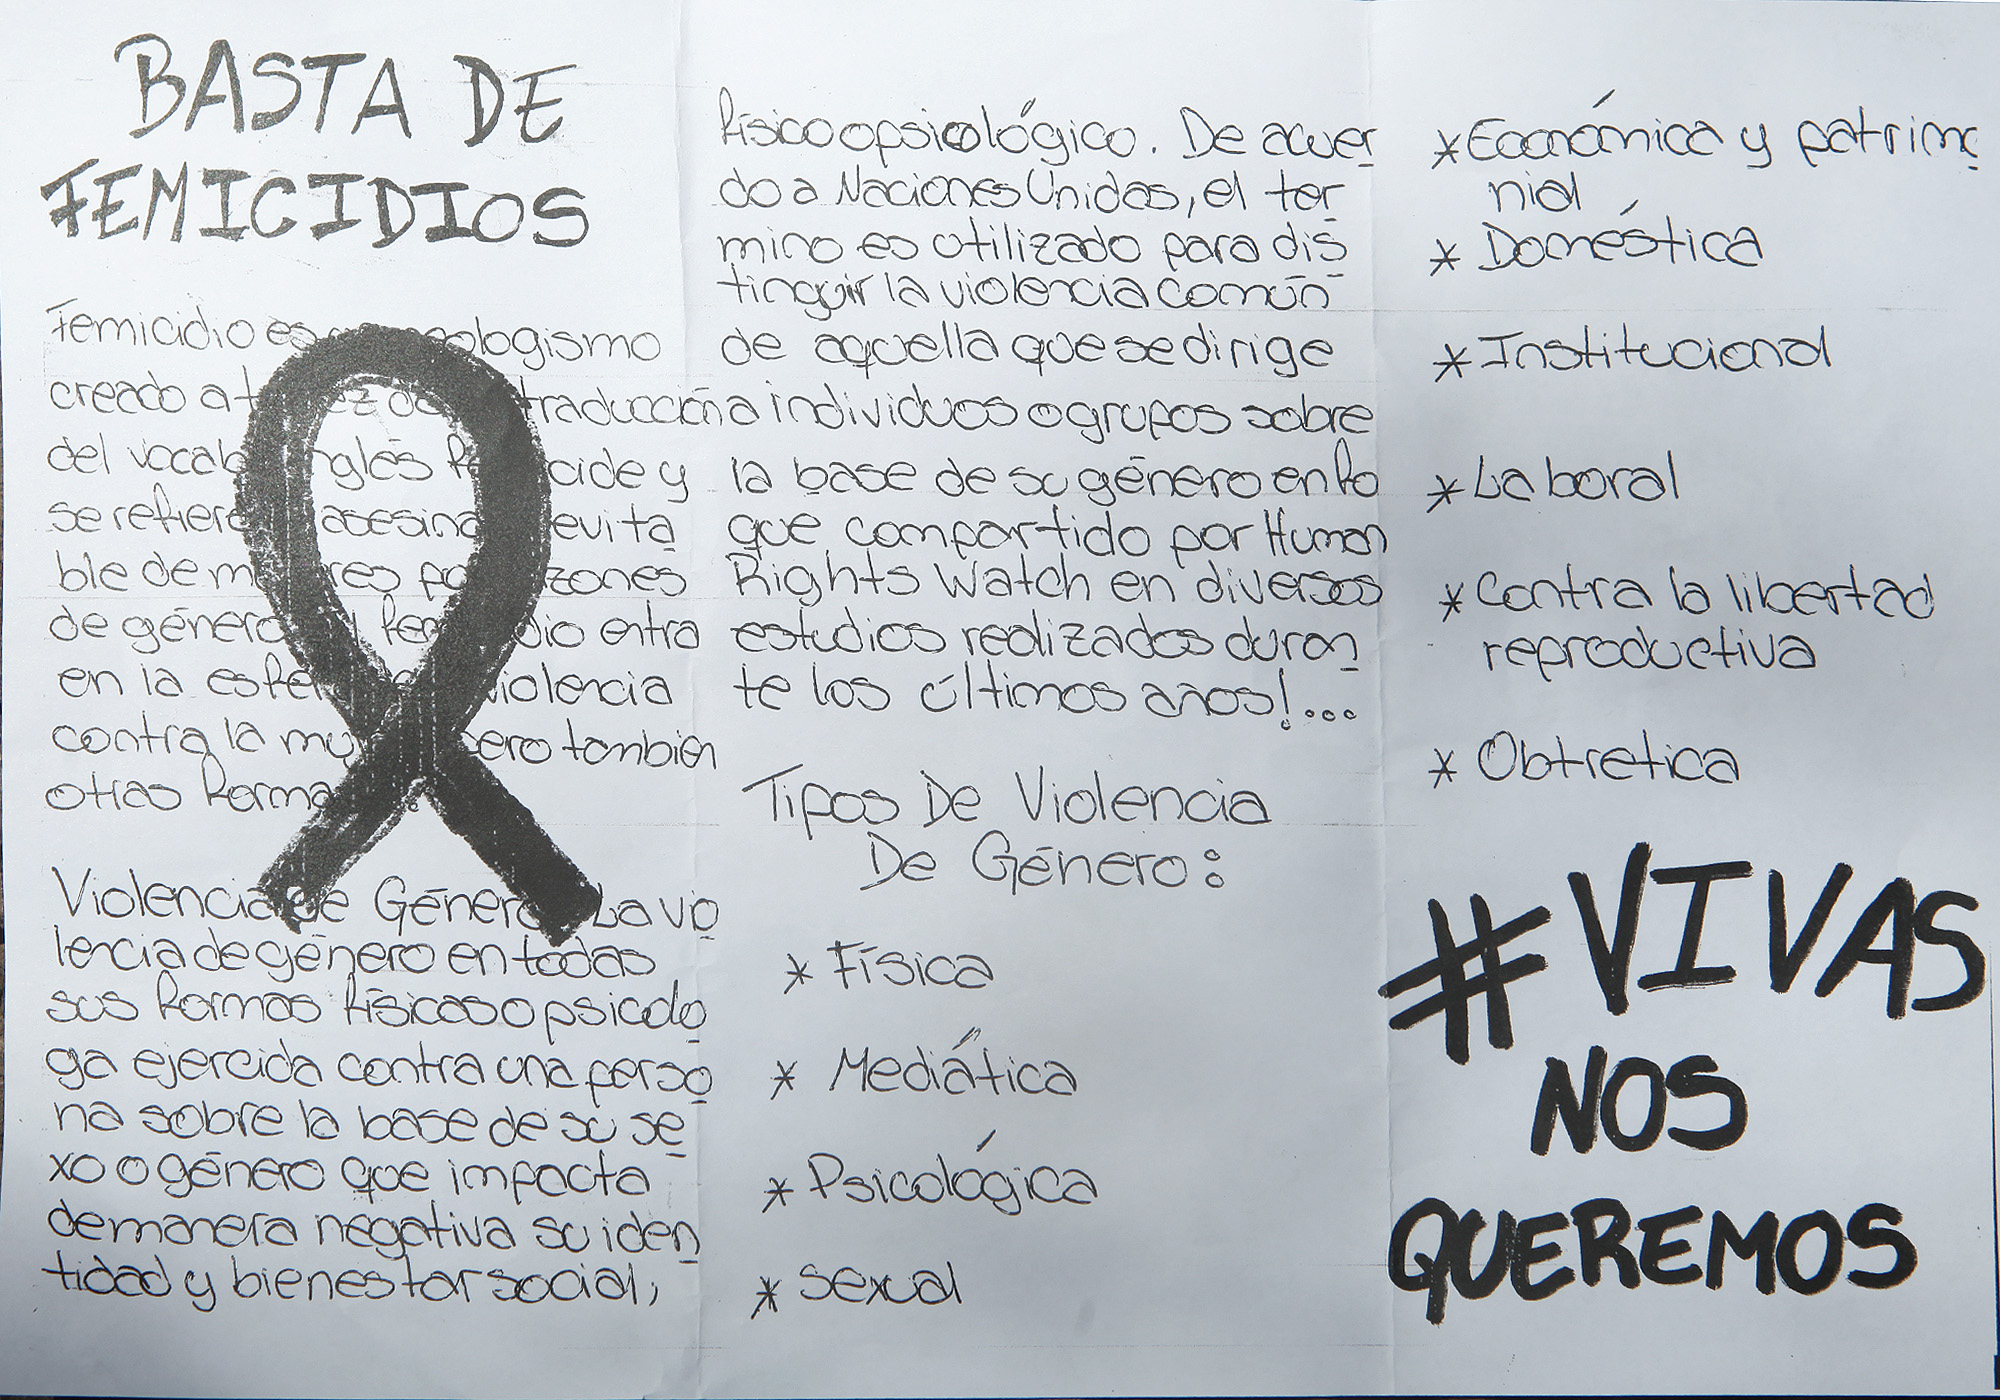 BASTA DE
FEMICIDIOS
Femicidio es ologismo
creado a t traducción
del vocab inglés cide y
se refiere asesina evita
ble de m res zones
de género entra
en la esfe violencia
contra la mu ero también
otras forma
Violencia de Género La vio
lencia de género en todas
sus formas físicas o psicoló
ga ejercida contra una perso
na sobre la base de su se
xo o género que impacta
de manera negativa su iden
tidad y bienestar social,
físico o psicológico. De acuer
do a Naciones Unidas, el tér
mino es utilizado para dis
tinguir la violencia común
de aquella que se dirige
a individuos o grupos sobre
la base de su género enfo
que compartido por Human
Rights Watch en diversos
estudios realizados duran
te los últimos años!...
Tipos De Violencia
De Género:
* Física
* Mediática
* Psicológica
* Sexual
* Económica y patrimo
nial
* Doméstica
* Institucional
* Laboral
* Contra la libertad
reproductiva
* Obtretica
#VIVAS
NOS
QUEREMOS